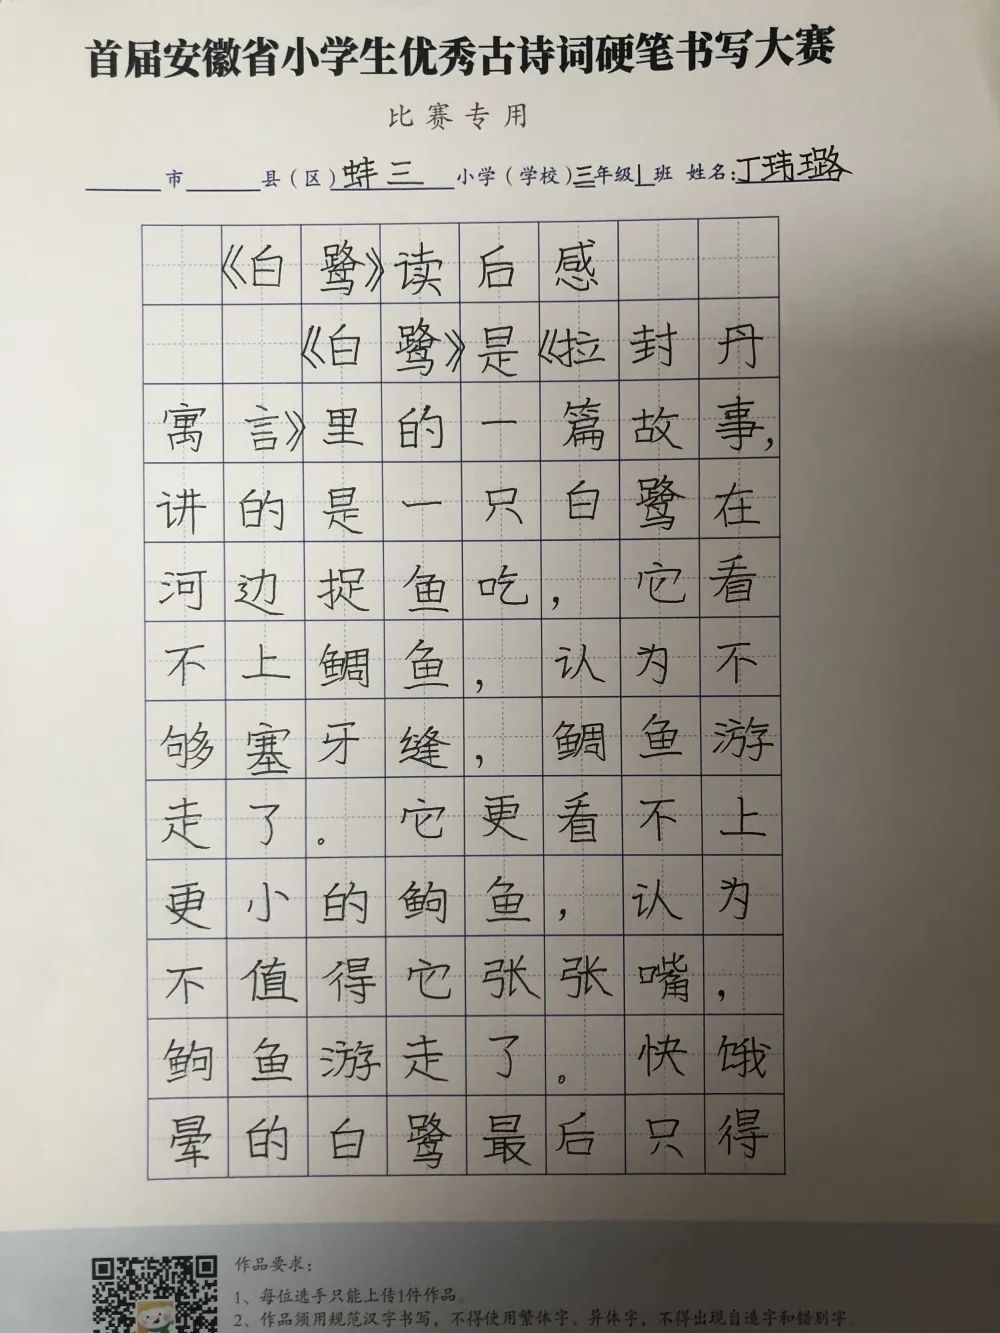 首届安徽省小学生优秀古诗词硬笔书写大赛
比赛专用
市 县(区) 蚌三 小学(学校)三年级1班 姓名:丁玮璐
《白鹭》读后感
《白鹭》是《拉封丹
寓言》里的一篇故事,
讲的是一只白鹭在
河边捉鱼吃,它看
不上鲷鱼,认为不
够塞牙缝,鲷鱼游
走了。它更看不上
更小的鮈鱼,认为
不值得它张张嘴,
鮈鱼游走了。快饿
晕的白鹭最后只得
作品要求:
1、每位选手只能上传1件作品。
2、作品须用规范汉字书写,不得使用繁体字、异体字,不得出现自造字和错别字。